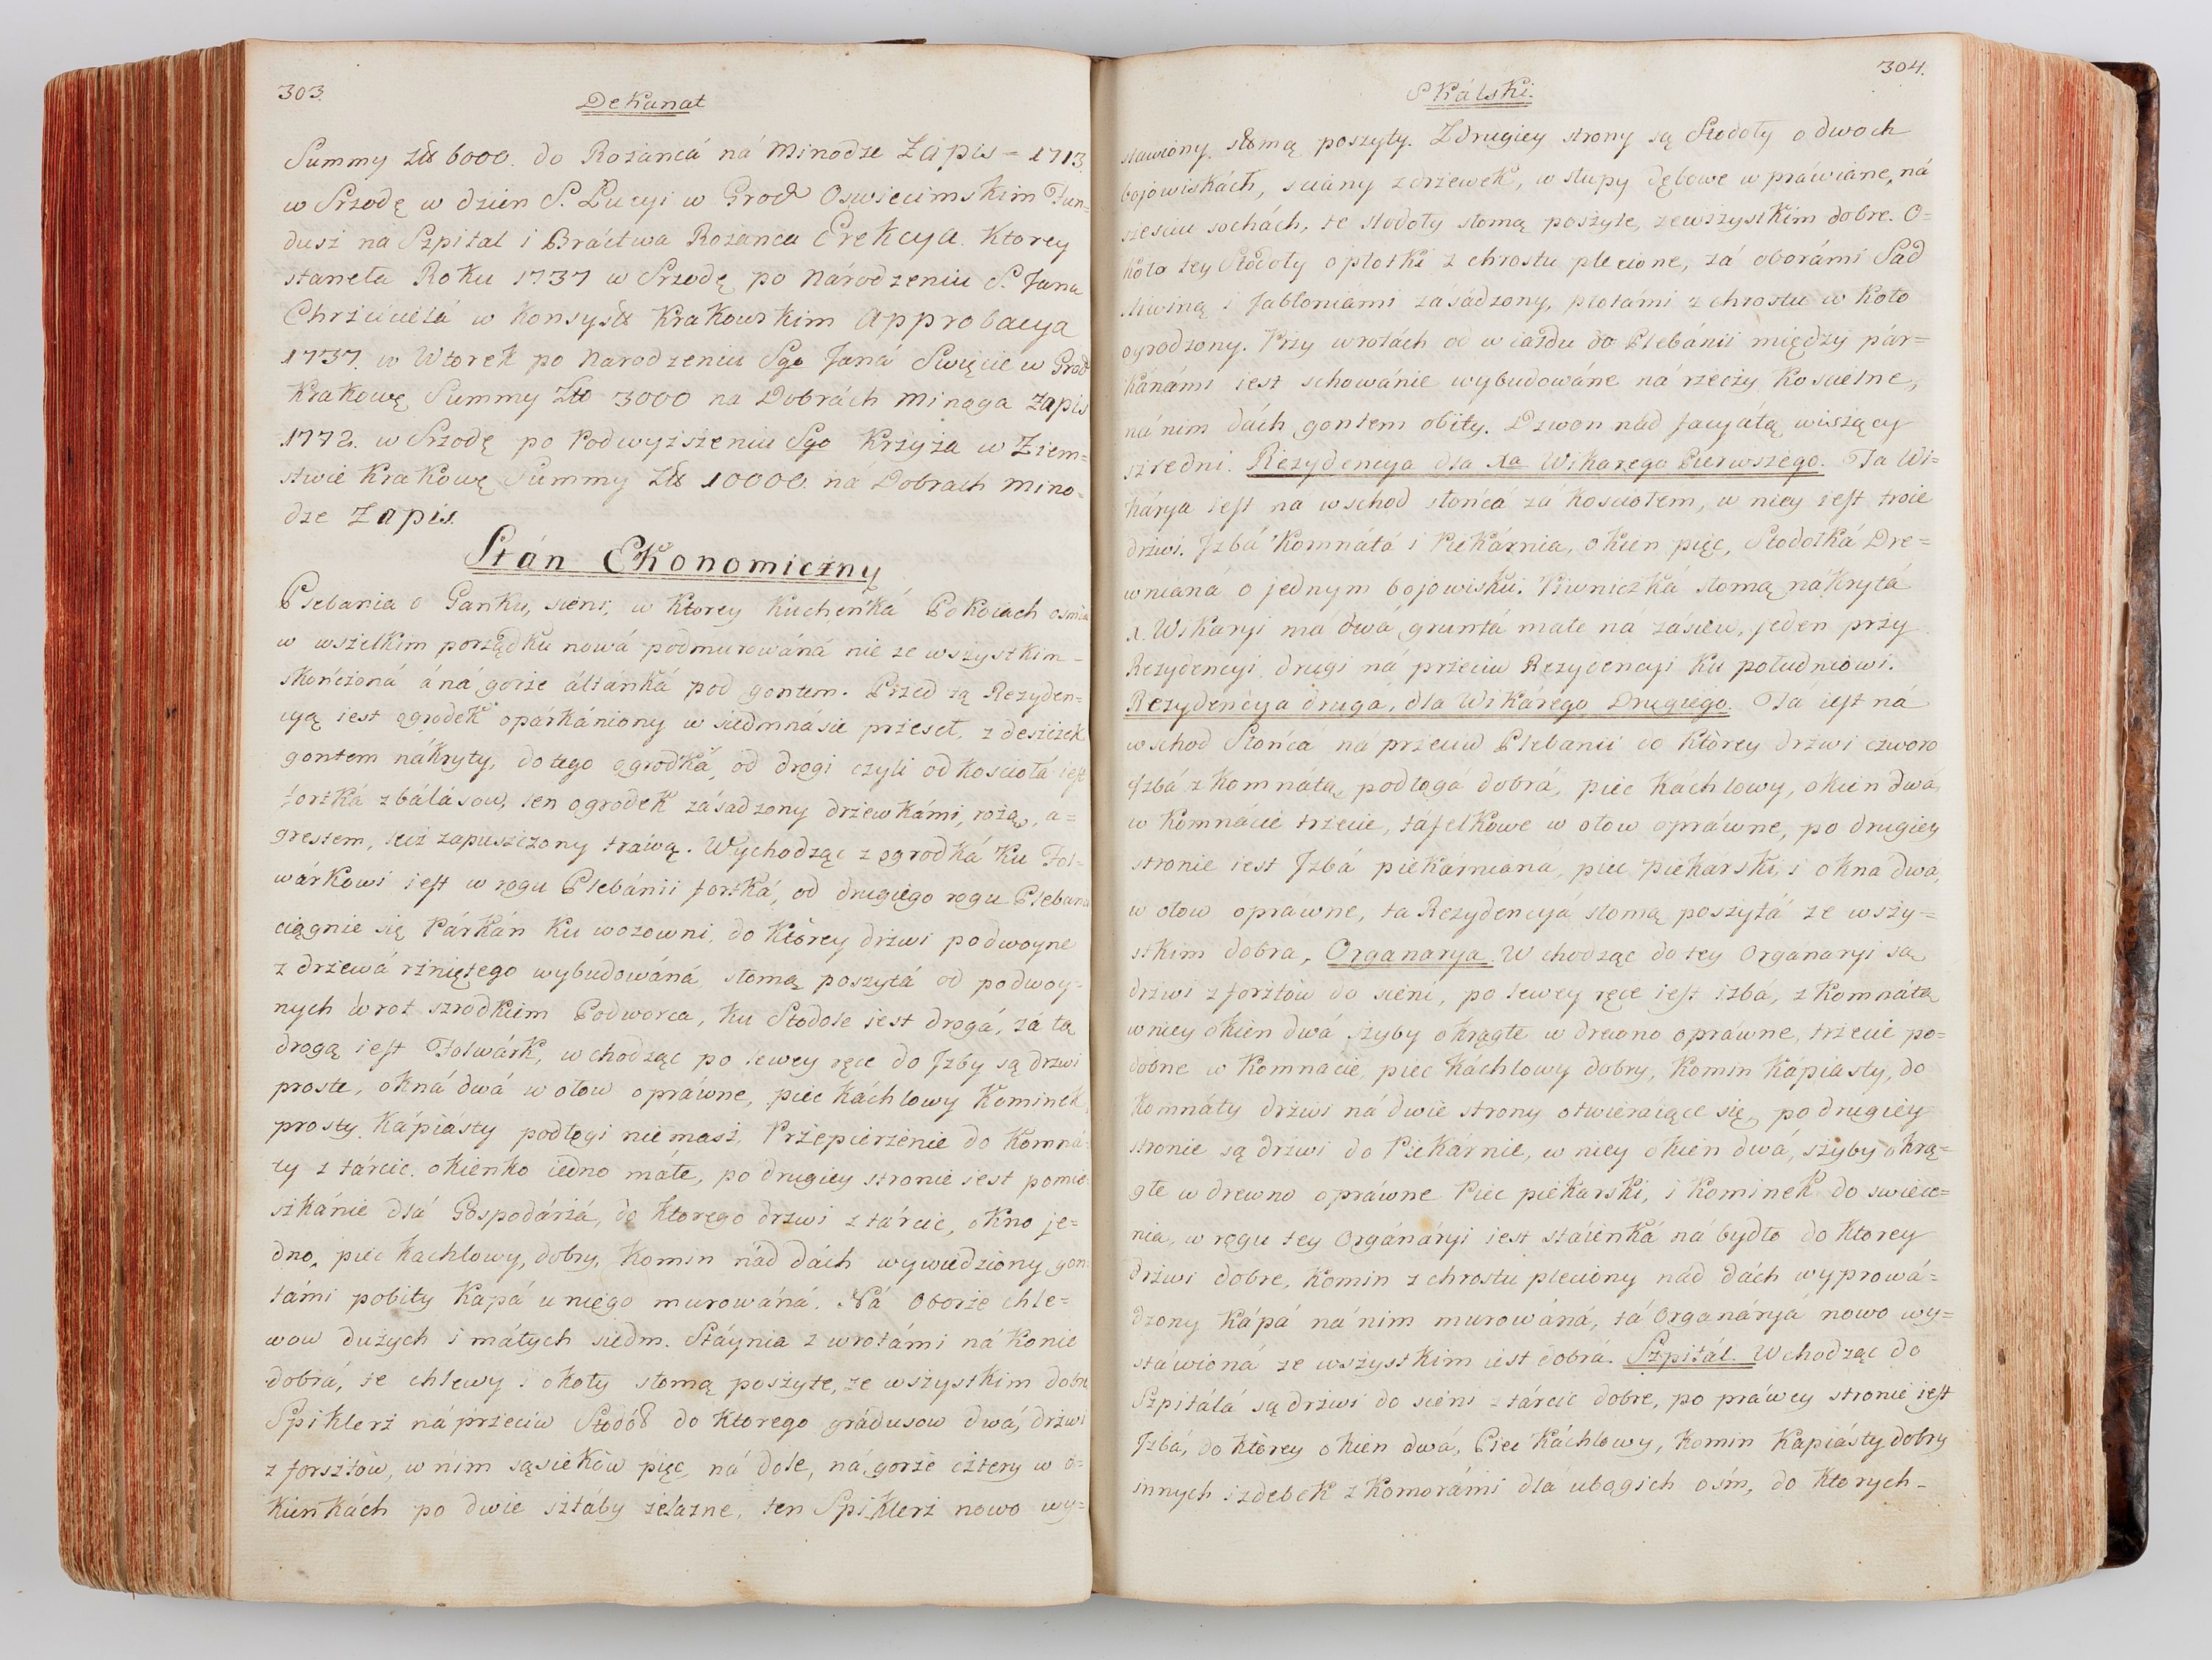 303.
Dekanat
Summy złł 6000. do Rożańcá ná Minodze Zapis = 1713.
w Srzodę w dzien S. Lucyi w Grod Oswiecimskim Fun=
dusz na Szpital i Bráctwa Rożanca Erekcya. Ktorey
staneła Roku 1737 w Srzodę po Národzeniu S. Jana
Chrzciciela w Konsyst Krakowskim Approbacya
1737. w Wtorek po Narodzeniu Sgo Janá Swięcie w Grod
Krakowę Summy Złło 3000 na Dobrách Minoga Zapis
1772. w Srzodę po Podwyższeniu Sgo Krzyża w Ziem=
stwie Krakowę Summy Złł 10000. ná Dobrach Mino=
dze Zapis.
Stán Ekonomiczny
Plebania o Ganku, sieni, w ktorey Kuchenká Pokoiach osmiu
w wszelkim porządku nowá podmurowáná nie ze wszystkim=
skończoná á ná gorze áltánká pod gontem. Przed tą Rezyden=
cyą iest ogrodek opárkániony w siedmnáście przeset, z deszczek
gontem nákryty, do tego ogrodká, od drogi czyli od kosciołá iest
fortká z bálásow, ten ogrodek zásadzony drzewkámi, rożą, a=
grestem, lecz zapuszczony tráwą. Wychodząc z ogrodká ku Fol=
wárkowi iest w rogu Plebánii fortká, od drugiego rogu Plebani
ciągnie się Párkán ku wozowni, do ktorey drzwi podwoyne
z drzewá rzniętego wybudowáná słomą poszytá od podwoy=
nych wrot szrodkiem Podworca, ku Stodole iest drogá, zá tą
drogą iest Folwárk, wchodząc po lewey ręce do Jzby są drzwi
proste, okná dwá w ołow opráwne, piec káchlowy Kominek
prosty kápiásty podłogi niemasz, Przepierzenie do Komná=
ty z tárcic. okienko iedno máłe, po drugiey stronie iest pomie=
szkánie dlá Gospodárzá, do ktorego drzwi z tárcic, okno je=
dno, piec kachlowy, dobry, komin nád dách wywiedziony gon=
támi pobity kapá u niego murowáná. Ná Oborze chle=
wow dużych i máłych siedm. Stáynia z wrotámi ná konie
dobrá, te chlewy i okoły słomą poszyte, ze wszystkim dobre
Spiklerz náprzeciw Stodół do ktorego grádusow dwá, drzwi
z forsztow, w nim sąsiekow pięc, ná dole, ná gorze cztery w o=
kienkách po dwie sztáby żelazne, ten Spiklerz nowo wy=
304.
Skálski.
stawiony, słomą poszyty. Z drugiey strony są Stodoły o dwoch
bojowiskách, sciany z drzewek, w słupy dębowe wpráwiane, ná
szesciu sochách, te stodoły słomą poszyte, ze wszystkim dobre. O=
koło tey Stodoły opłotki z chrostu plecione, zá oborámi Sad
sliwiną i Jabłoniámi zásádzony, płotámi z chrostu w koło
ogrodzony. Przy wrotách od wiazdu do Plebánii między pár=
kánámi iest schowánie wybudowáne ná rzeczy koscielne,
ná nim dách gontem obity. Dzwon nád facyatą wiszący
szredni. Rezydencya dla Xa Wikarego Pierwszego. Ta Wi=
kárya iest ná wschod słońcá zá kosciołem, w niey iest troie
drzwi. Jzbá komnátá i Piekárnia, okien pięc, Stodołká Dre=
wniana o jednym bojowisku. Piwniczká słomą nákrytá
X. Wikaryi ma dwá gruntá małe na zasiew, jeden przy
Rezydencyi drugi ná przeciw Rezydencyi ku południowi.
Rezydencya druga, dla Wikárego Drugiego. Tá iest ná
wschod Słońcá náprzeciw Plebanii do ktorey drzwi czworo
Jzbá z komnátą, podłoga dobrá, piec káchlowy, okien dwá,
w komnácie trzecie, tafelkowe w ołow opráwne, po drugiey
stronie iest Jzbá piekárniana, piec piekárski, i okna dwa,
w ołow opráwne, ta Rezydencyá słomą poszytá ze wszy=
stkim dobra, Organarya. Wchodząc do tey Organaryi są
drzwi z forsztow do sieni, po lewey ręce iest izbá, z komnátą
w niey okien dwá szyby okrągłe w drewno opráwne, trzecie po=
dobne w komnacie, piec káchlowy dobry, komin kápiasty, do
komnáty drzwi ná dwie strony otwieraiące się, po drugiey
stronie są drzwi do Piekárnie, w niey okien dwá, szyby okrą=
głe w drewno opráwne Piec piekárski, i kominek do swiece=
nia, w rogu tey Orgánáryi iest stáienká ná bydło do ktorey
drzwi dobre, komin z chrostu pleciony nád dách wyprowá=
dzony kápá ná nim murowáná, tá Organárya nowo wy=
stáwioná ze wszystkim iest dobrá. Szpitál. Wchodząc do
Szpitálá są drzwi do sieni z tárcic dobre, po práwey stronie iest
Jzbá, do ktorey okien dwá, Piec káchlowy, komin kapiásty dobry
innych izdebek z komorámi dla ubogich osm, do ktorych=